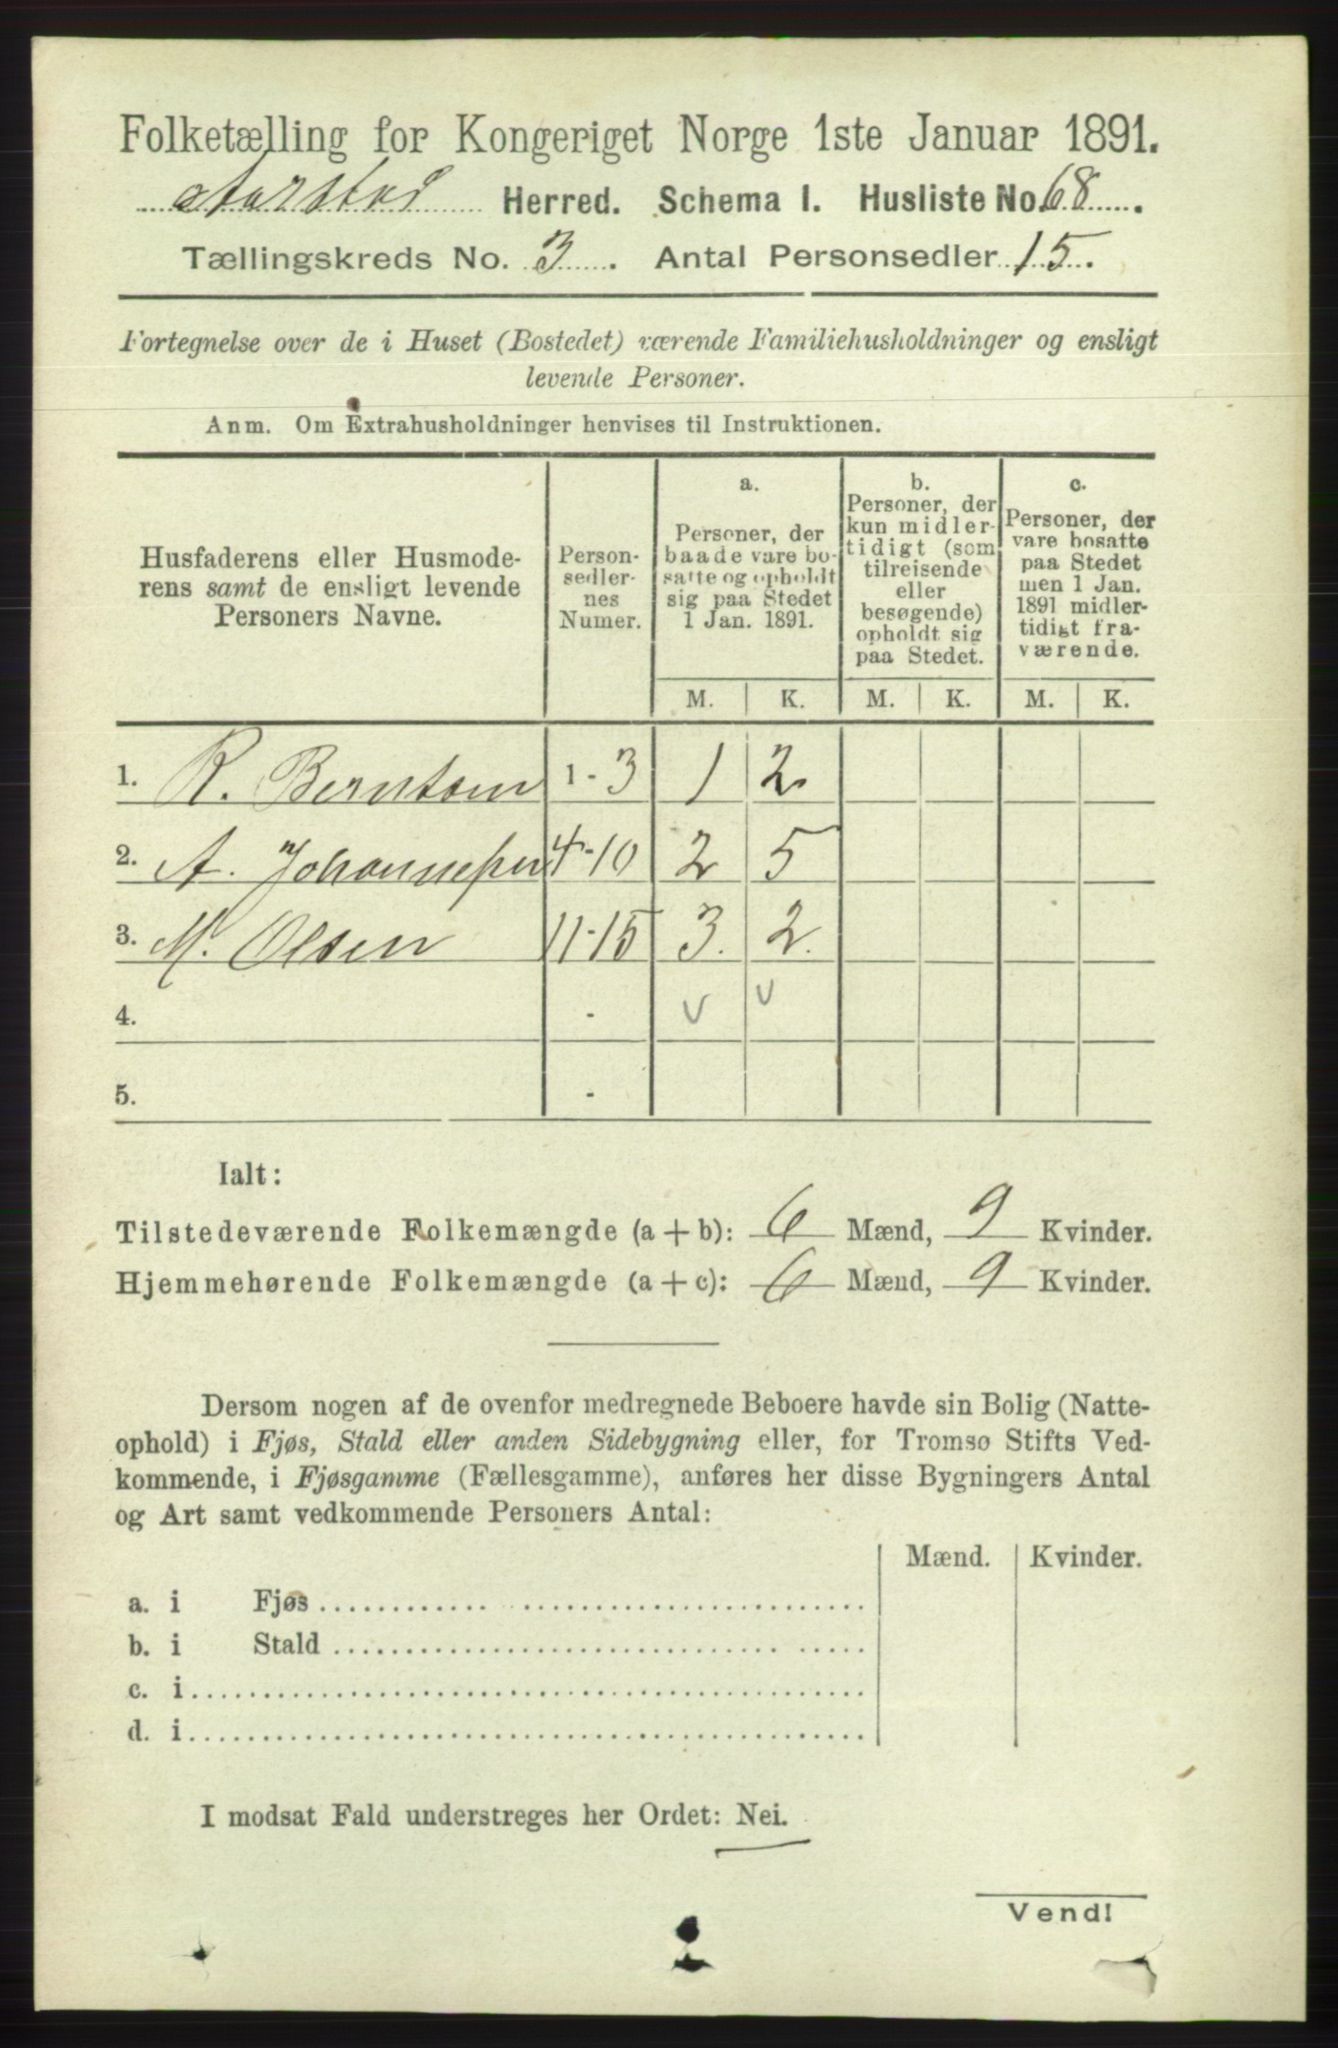 Folketælling for Kongeriget Norge 1ste Januar 1891.
Aarstad Herred. Schema I. Husliste No. 68.
Tællingskreds No. 3. Antal Personsedler 15.
Fortegnelse over de i Huset (Bostedet) værende Familiehusholdninger og ensligt
levende Personer.
Anm. Om Extrahusholdninger henvises til Instruktionen.
Husfaderens eller Husmode-
rens samt de ensligt levende
Personers Navne.
Person-
sedler-
nes
Numer.
a.
Personer, der
baade vare bo-
satte og opholdt
sig paa Stedet
1 Jan. 1891.
b.
Personer, der
kun midler-
tidigt (som
tilreisende
eller
besøgende)
opholdt sig
paa Stedet.
c.
Personer, der
vare bosatte
paa Stedet
men 1 Jan.
1891 midler-
tidigt fra-
værende.
M. K. M. K. M. K.
1. R. Berntsen 1-3 1 2
2. A. Johannesen 4-10 2 5
3. M. Olsen 11-15 3. 2.
4. - v v
5. -
Ialt:
Tilstedeværende Folkemængde (a + b): 6 Mænd, 9 Kvinder.
Hjemmehørende Folkemængde (a + c): 6 Mænd, 9 Kvinder.
Dersom nogen af de ovenfor medregnede Beboere havde sin Bolig (Natte-
ophold) i Fjøs, Stald eller anden Sidebygning eller, for Tromsø Stifts Ved-
kommende, i Fjøsgamme (Fællesgamme), anføres her disse Bygningers Antal
og Art samt vedkommende Personers Antal:
Mænd. Kvinder.
a. i Fjøs
b. i Stald
c. i
d. i
I modsat Fald understreges her Ordet: Nei.
Vend!